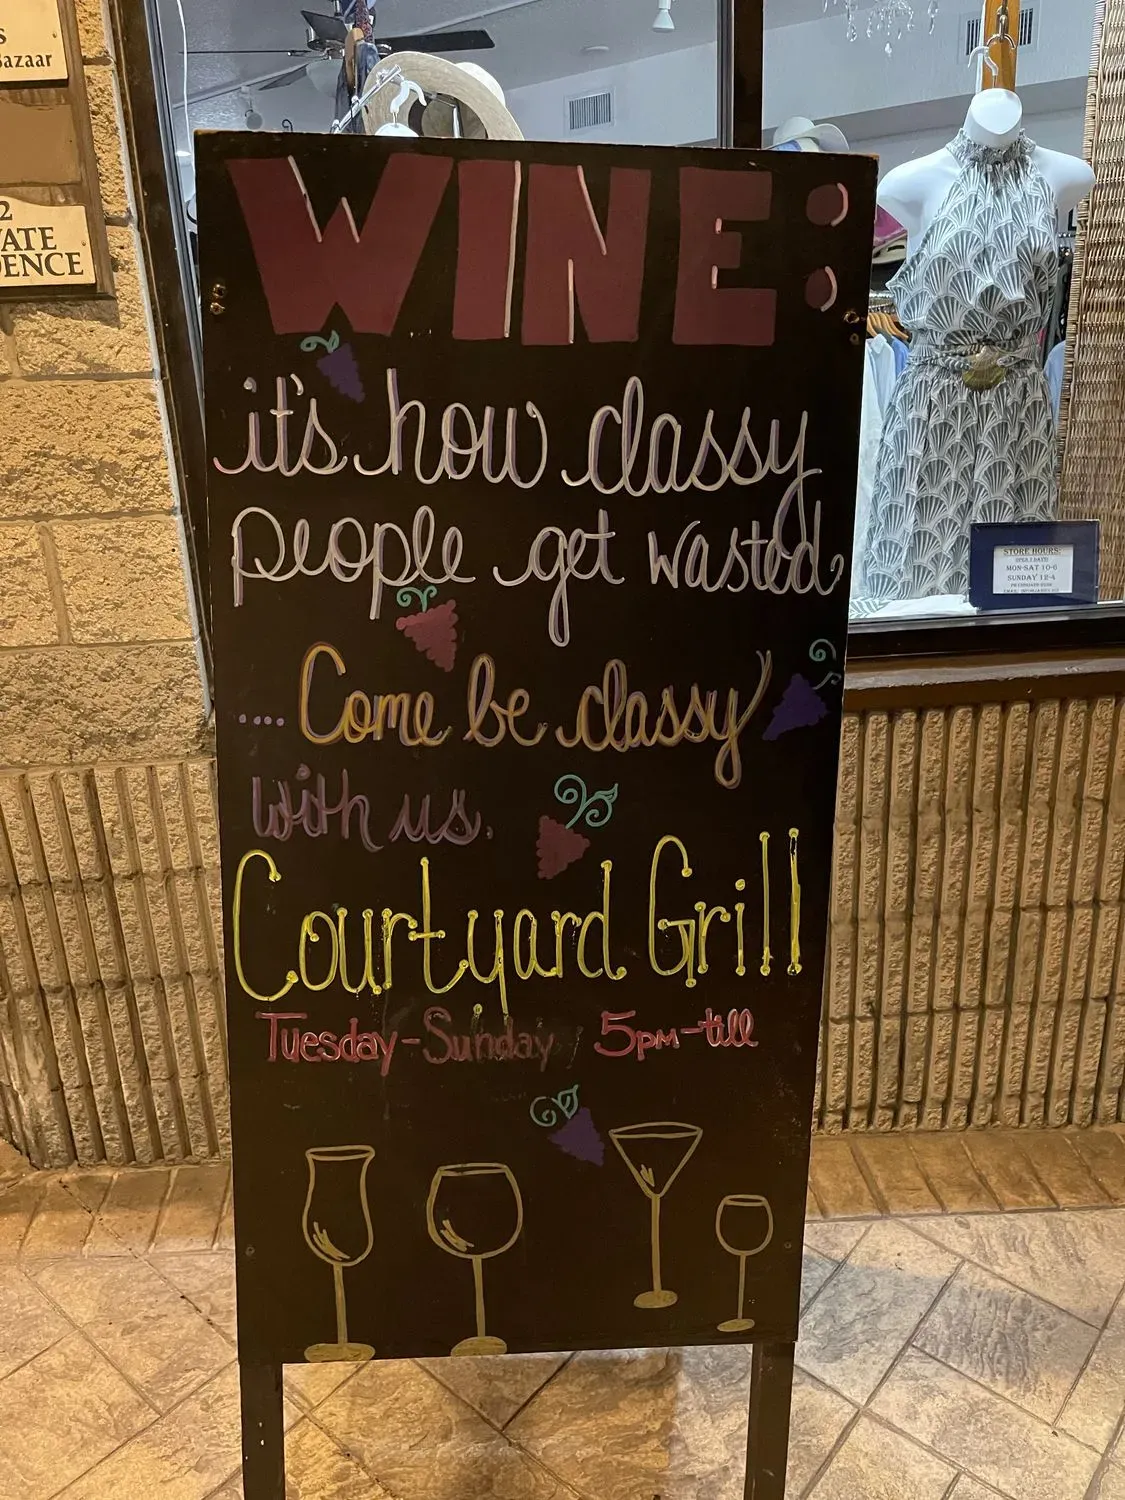 s
Bazaar
2
VATE
DENCE
WINE:
it's how classy
people get wasted
.... Come be classy
with us.
Courtyard Grill
Tuesday-Sunday 5pm-till
STORE HOURS:
OPEN 7 DAYS
MON-SAT 10-6
SUNDAY 12-4